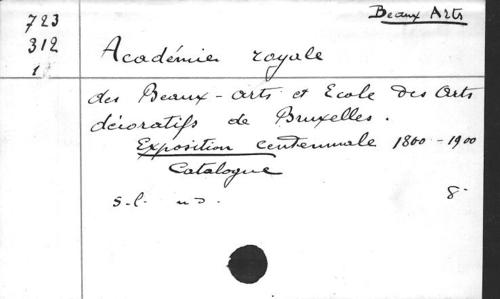 Beaux Arts
723
312
1
Académie royale
des Beaux-Arts et Ecole des Arts
décoratifs de Bruxelles.
Exposition centennale 1800-1900
Catalogue
s.l. n.d. 8°